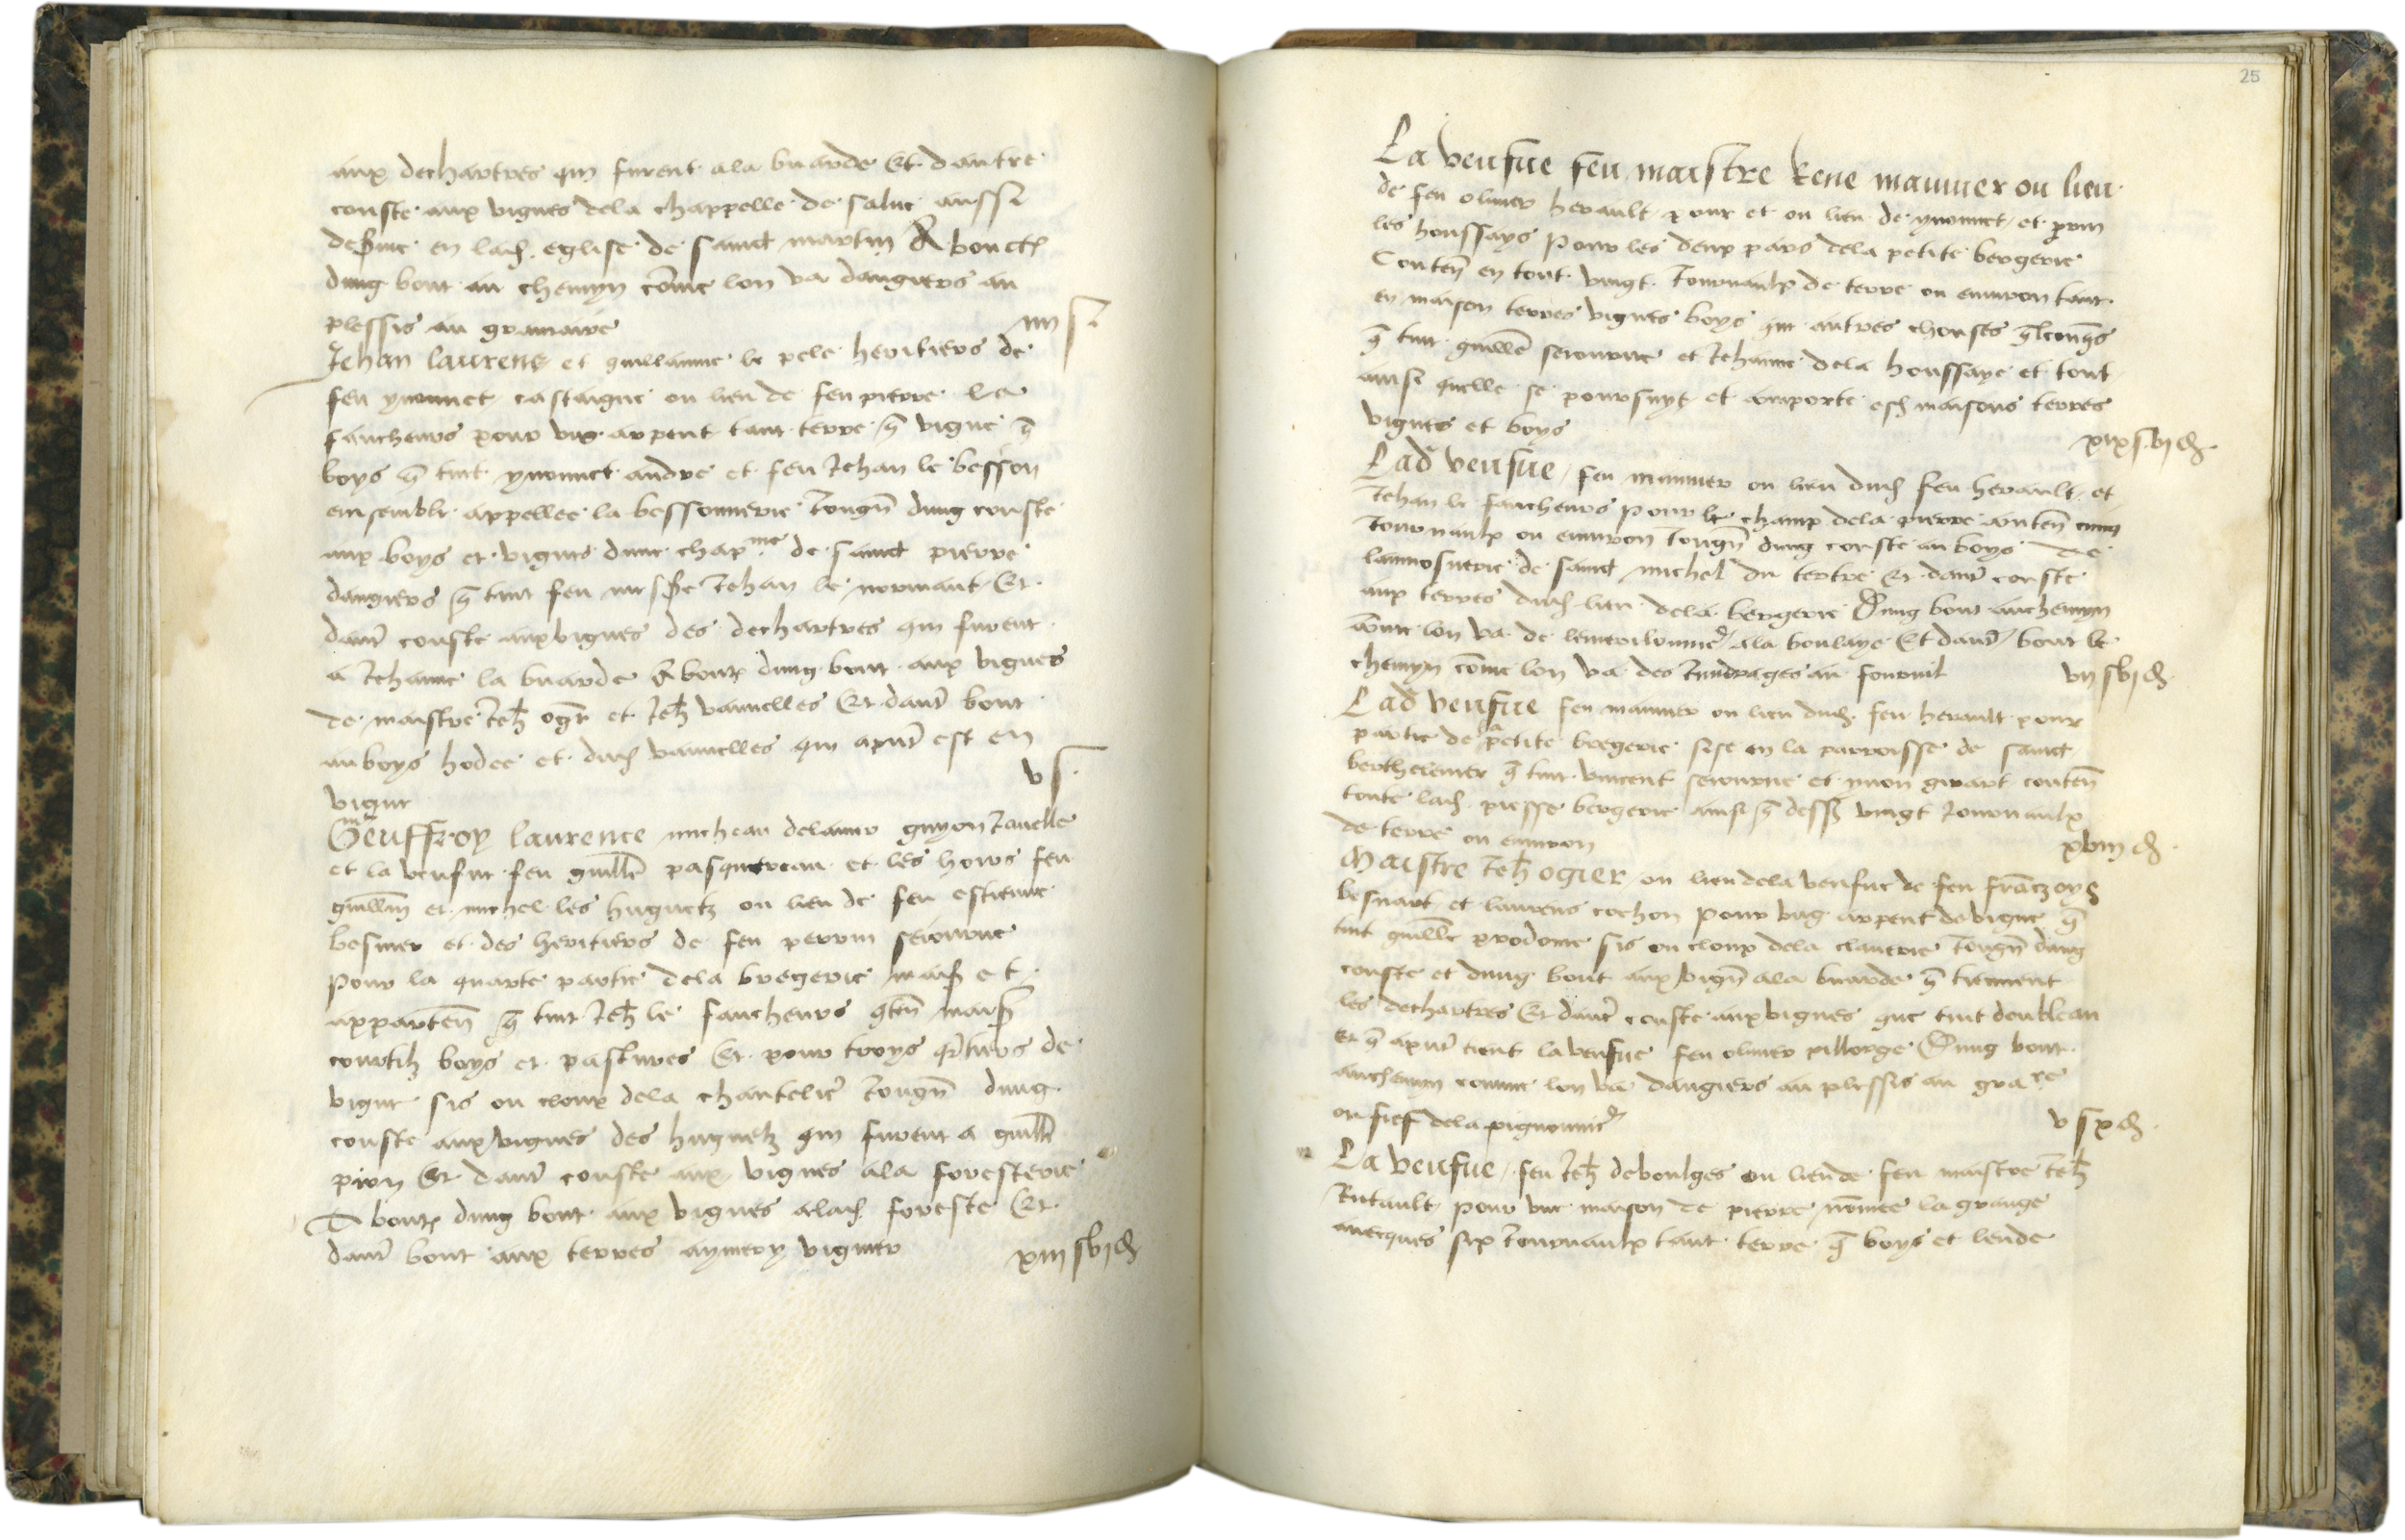 aux dechartres qui furent ala buarde Et dautre
couste aux vignes dela chappelle de salue aussi
en lad. eglise de sainct martin Aboute
dung bout au chemyn come lon va dangiers au
plessis au gramaire
iiii s
Jehan laurens et guillaume le pele heritiers de
feu yvonnet castaigne ou lieu de feu pierre le
faucheurs pour ung arpent tant terre q vigne q
boys q tint yvonnet andre et feu Jehan le besson
ensemble appellee la bessonnerie Joingn dung couste
aux boys et vignes dune chapnie de sainct pierre
dangiers q tint feu messe Jehan le normant Et
daut couste aux vignes des dechartres qui furent
a Jehanne la buarde About dung bout aux vignes
de maistre Jeh ogr et Jeh vannelles Et daut bout
au boys hodee et dud vannelles qui apnt est en
vigne
v s
Geuffroy laurence micheau delaunay guyon Jauelle
et la veufue feu guille pasquereau et les hoirs feu
guillm et michel les huguetz ou lieu de feu estienne
besnier et des heritiers de feu perrin seiourne
Pour la quarte partie dela bregerie mais et
apparten q tint Jeh le faucheurs qten mais
courtilz boys et pastures Et pour troys qrtiers de
vigne sis ou cloux dela chantelie Joingn dung
couste aux vignes des huguetz qui furent a guill
pion Et daut couste aux vignes ala foresterie
About dung bout aux vignes alad foreste Et
daut bout aux terres aymery vigner
xiii s vi d
25
La veufue feu maistre Rene maunier ou lieu
de feu oliuier herault pour et ou lieu de yvonnet et perrin
les houssays Pour les deux pars dela petite bergerie
Conten en tout vingt Journaulx de terre ou enuiron tant
en maison terres vignes boys que autres chouses qlconqs
q tint guille seiourne et Jehanne dela houssaye et tout
ainsi quelle se poursuyt et comporte esd maisons terres
vignes et boys
xix s vi d
Lad veufue feu maunier ou lieu dud feu herault et
Jehan le faucheurs Pour le champ dela pierre conten cinq
Journaulx ou enuiron Joingn dung couste au boys de
laumosnerie de sainct michel du tertre Et daut couste
aux terres dud lieu dela bergerie Dung bout au chemyn
come lon va de lemerilonnie ala boulaye Et daut bout le
chemyn come lon va des Jundrages au fournil
vii s vi d
Lad veufue feu maunier ou lieu dud. feu herault pour
partie de la petite bregerie sise en la parroisse de sainct
berthelemer q tint vincent seiourne et yuon girart conten
toute lad. piesse bergerie ainsi q dess vingt Journaulx
de terre ou enuiron
xviii d
Maistre Jeh ogier ou lieu dela veufue de feu franczoys
besnart et laurens cochon Pour ung arpent de vigne q
tint guille prodome sis ou cloux dela clauerie Joingn dung
couste et dung bout aux vign ala buarde q tiennent
les dechartres Et daut couste aux vignes que tint doubleau
et q apnt tient la veufue feu oliuier pillorge Dung bout
au chemyn comme lon va dangiers au plessis au grare
ou fief dela pignonnie
v s x d
La veufue feu Jeh deboulges ou lieu de feu maistre Jeh
Rutault pour une maison de pierre nomee la grange
auecques six Journaulx tant terre q boys et lende